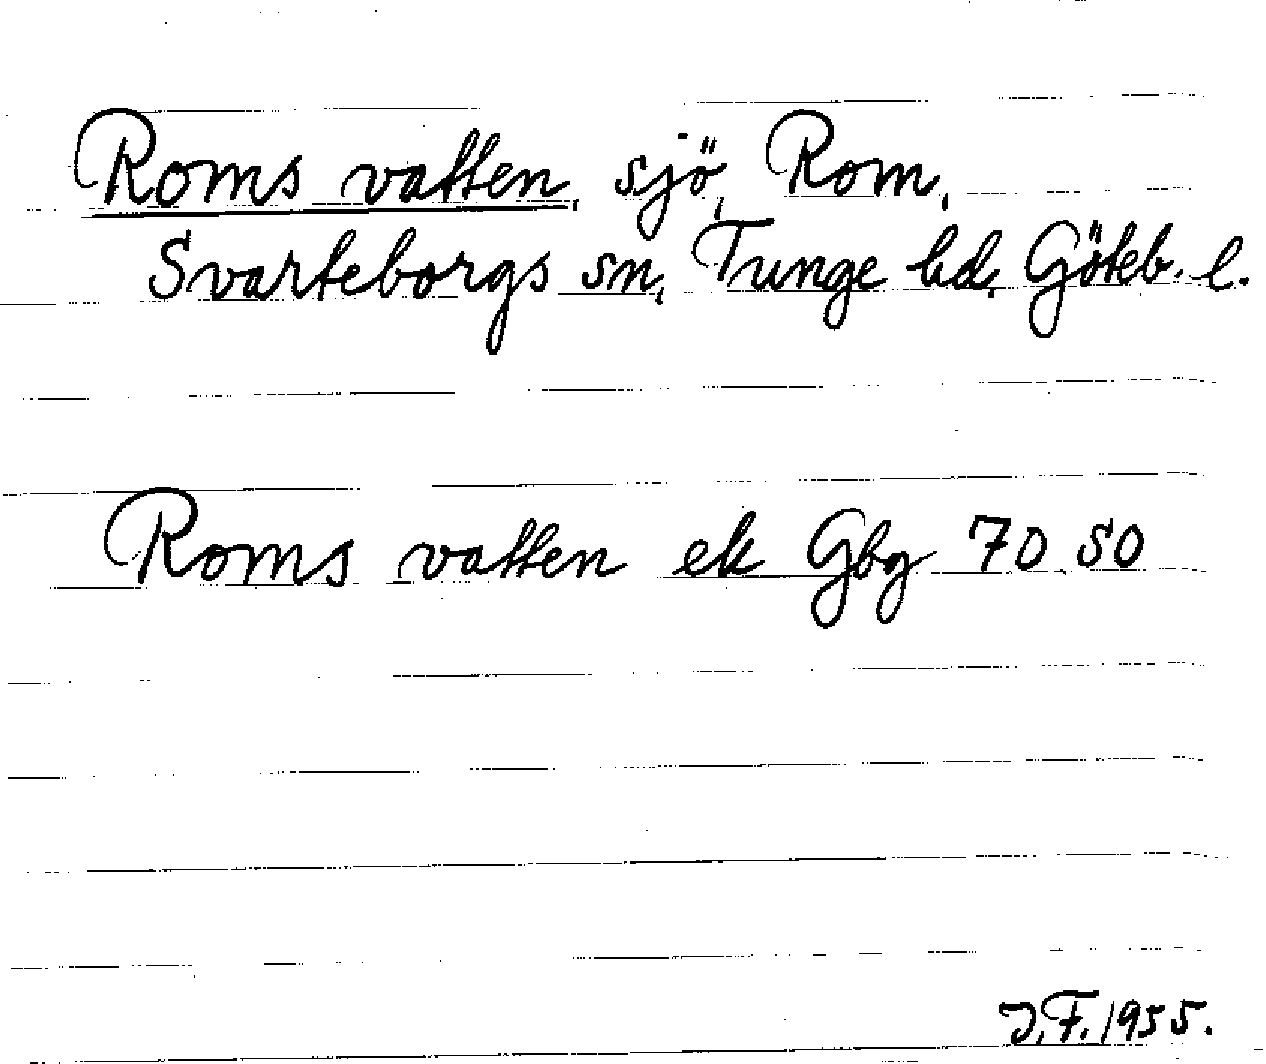 Roms vatten, sjö, Rom,
Svarteborgs sn, Tunge hd, Göteb. l.
Roms vatten ek Gbg 70 SO
J.F. 1955.